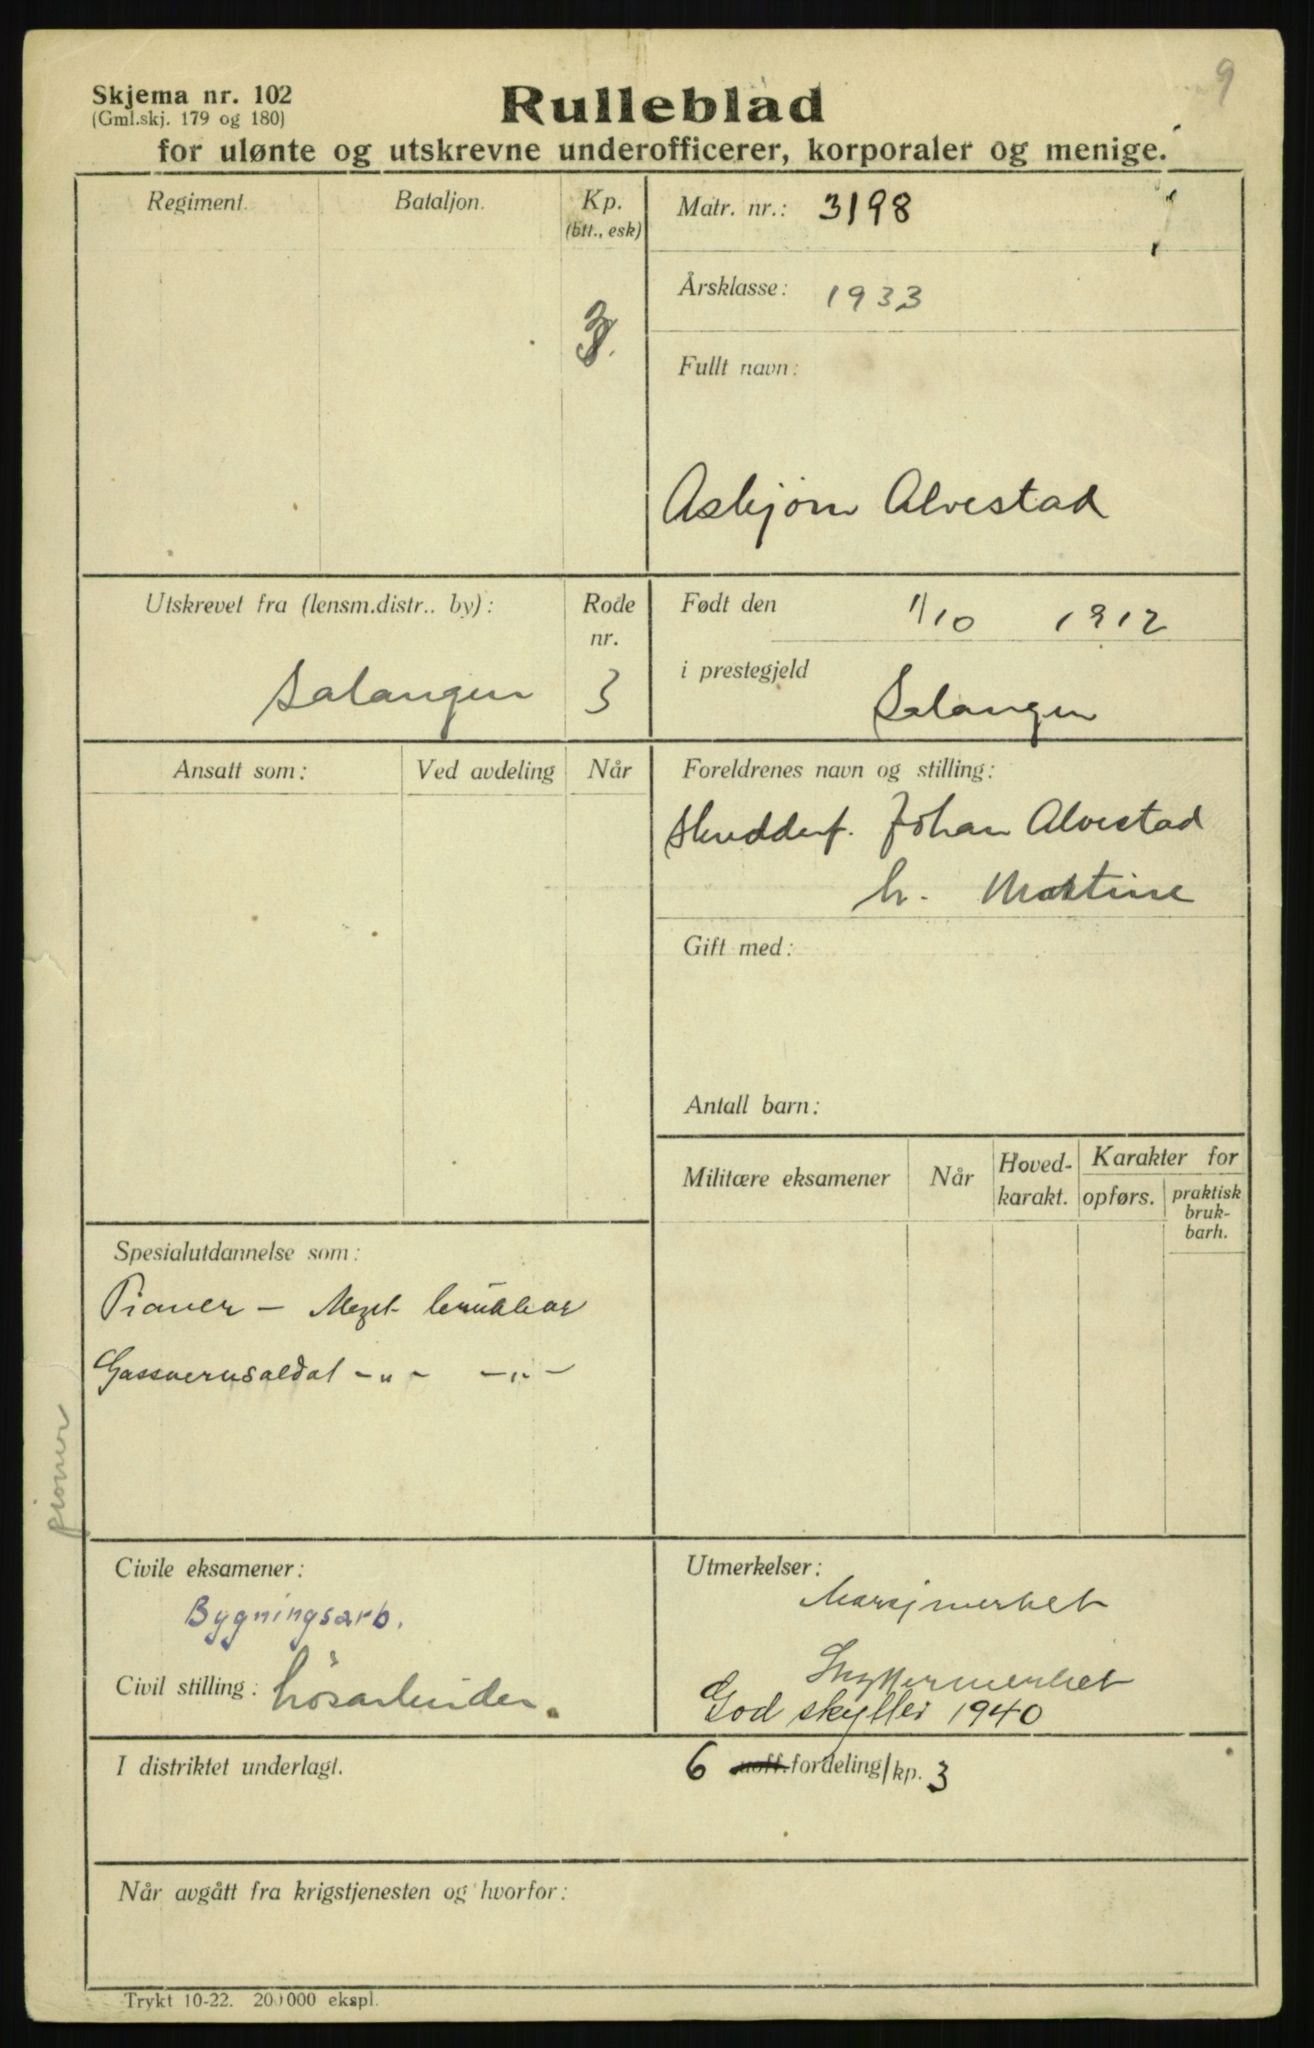 9
Skjema nr. 102
(Gml.skj. 179 og 180)
Rulleblad
for ulønte og utskrevne underofficerer, korporaler og menige.
Regiment.
Bataljon.
Kp.
(btt., esk)
3.
Matr. nr.: 3198
Årsklasse: 1933
Fullt navn:
Asbjørn Alvestad
Utskrevet fra (lensm.distr.. by):
Salangen
Rode
nr.
3
Født den 1/10 1912
i prestegjeld
Salangen
Ansatt som:
Ved avdeling
Når
Foreldrenes navn og stilling:
Johan Alvestad
h. Martine
Gift med:
Antall barn:
Militære eksamener
Når
Hoved-
karakt.
Karakter for
opførs.
praktisk
bruk-
barh.
Spesialutdannelse som:
Pioner - Meget brukbar
Gassvernsoldat -"- -"-
pioner
Civile eksamener:
Bygningsarb.
Civil stilling: Løsarbeider.
Utmerkelser:
Marsjmerket
Skyttermerket
God skytter 1940
I distriktet underlagt.
6 uoff.fordeling/kp. 3
Når avgått fra krigstjenesten og hvorfor:
Trykt 10-22. 200000 ekspl.